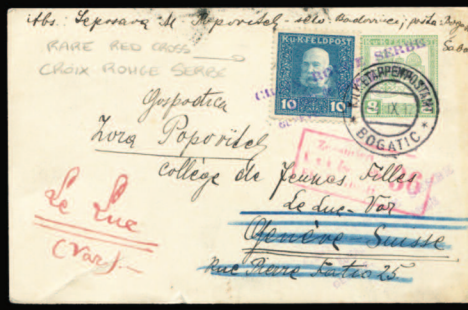 Abs: Leposava M. Popovitch - selo: Badovinci; pošta Bog
Šaba
RARE RED CROSS
CROIX ROUGE SERBE
K.u.K.FELDPOST
CROIX ROUGE SERBE
10 10
K.u.K. ETAPPENPOSTAMT
IX.1
BOGATIC
Gospodica
Zora Popovitch
Collège de Jeunes Filles
66
Le Luc
Le Luc-Var
(Var).-
Genève-Suisse
Rue Pierre Fatio 25.